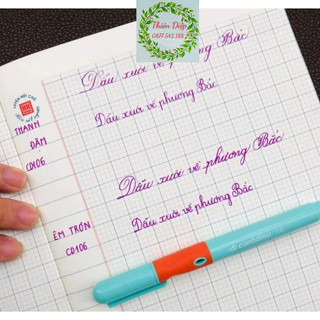 Thiên Diệp
0377.542.188
Dấu xưa về phương Bắc
Dấu xưa về phương Bắc
THANH
ĐẬM
CD106
Dấu xưa về phương Bắc
Dấu xưa về phương Bắc
ÊM TRƠN
CD106